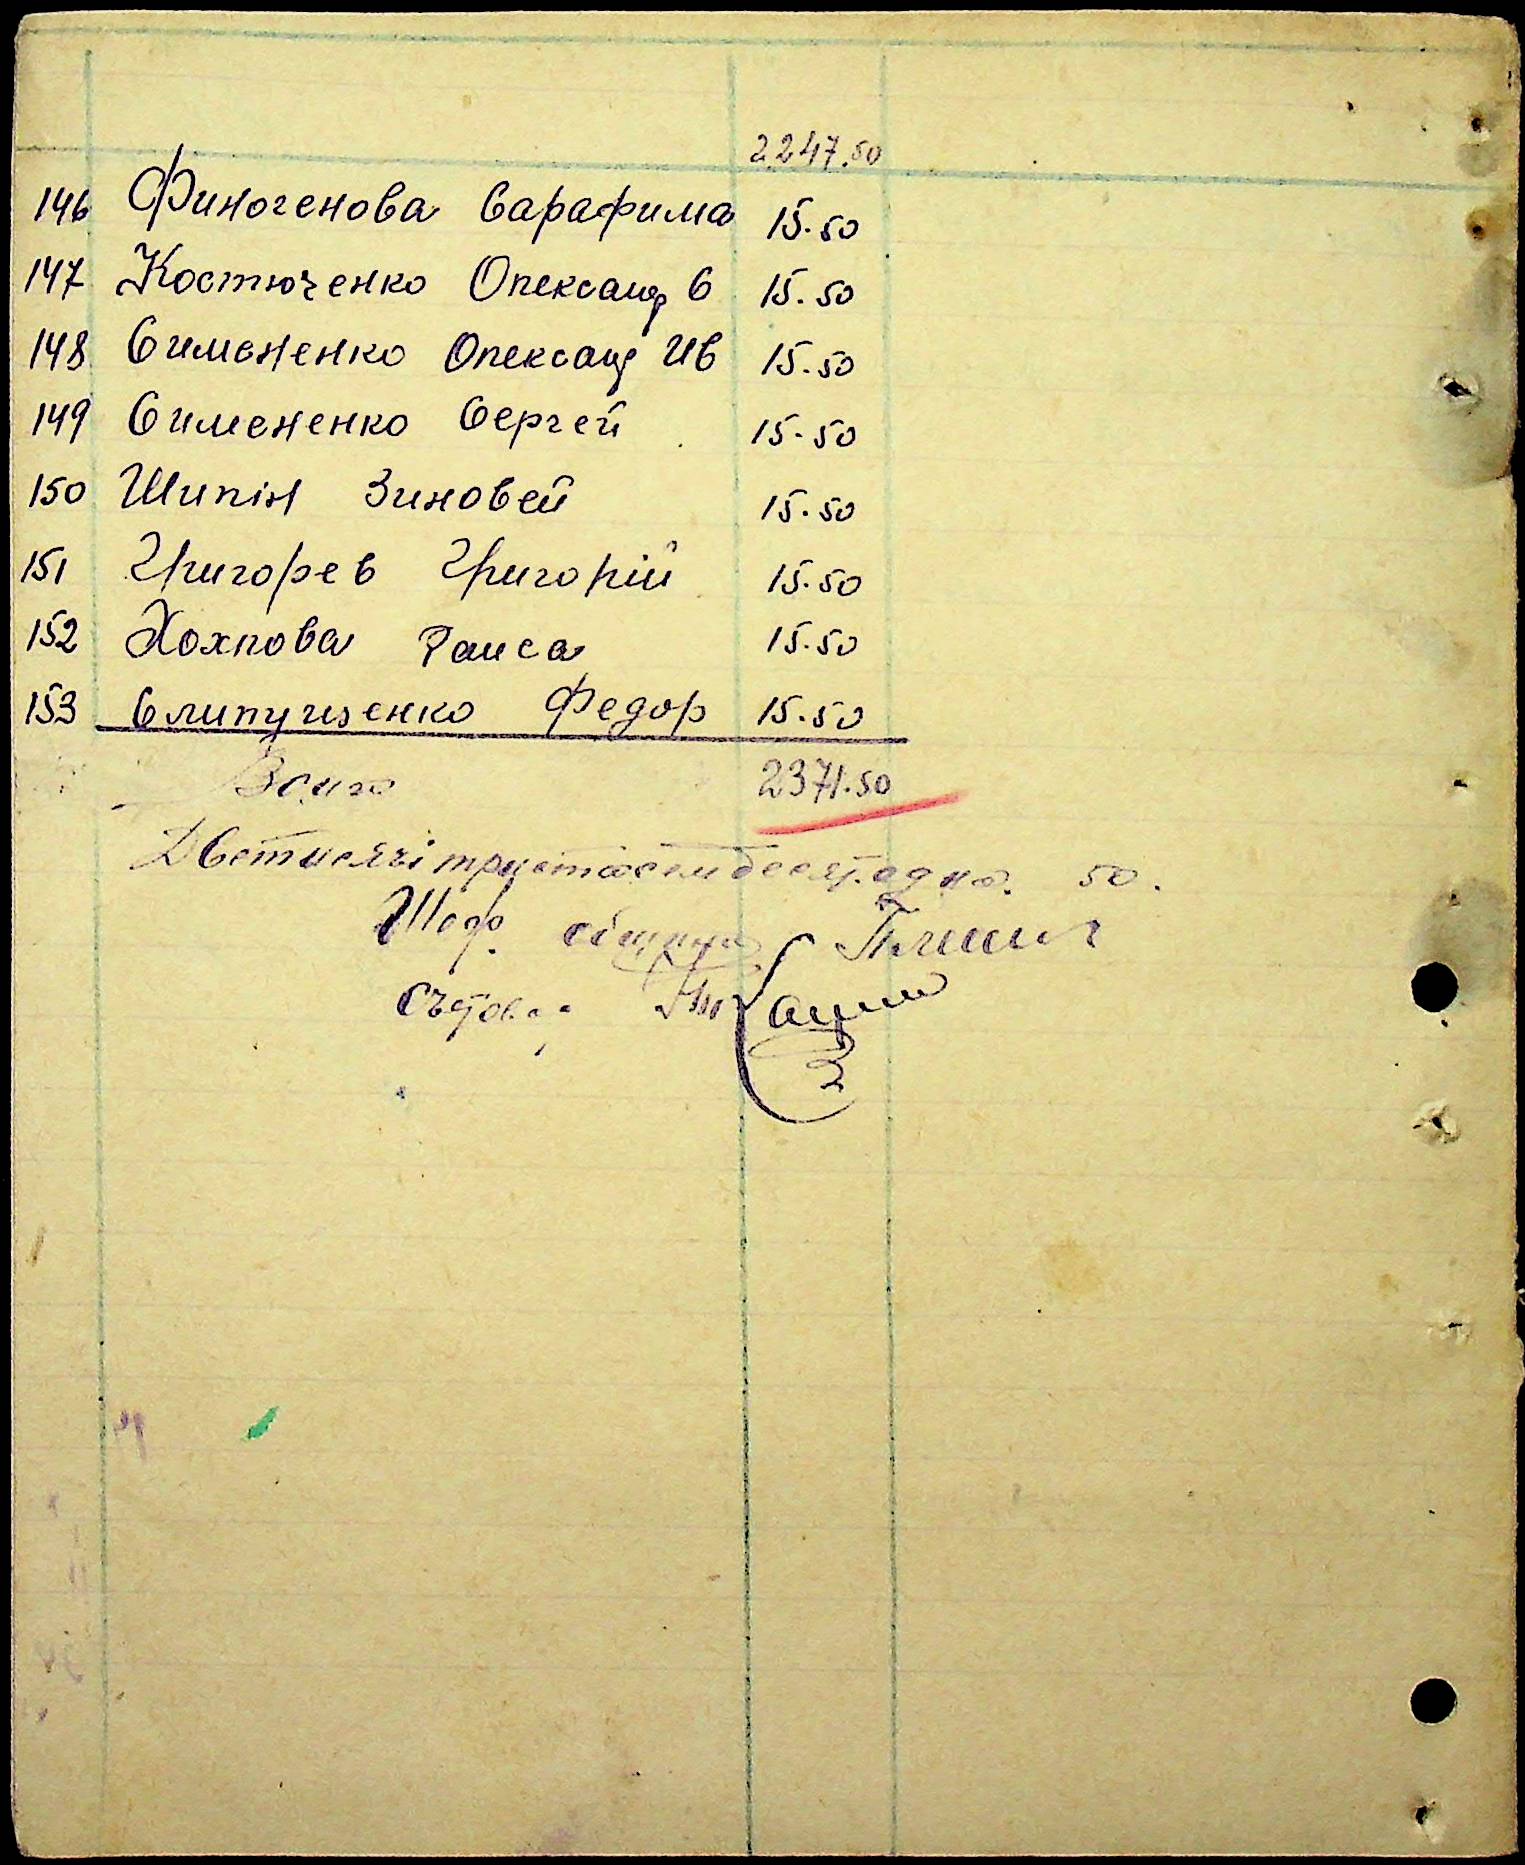 2247.50
146 Финогенова Сарафима 15.50
147 Костюченко Олександр С 15.50
148 Симоненко Олександ Ив 15.50
149 Симоненко Сергей 15.50
150 Шипін Зиновей 15.50
151 Григорев Григорій 15.50
152 Хохлова Раиса 15.50
153 Слипущенко Федор 15.50
Всиго 2371.50
Дветисячі тристасемдесят одна 50.